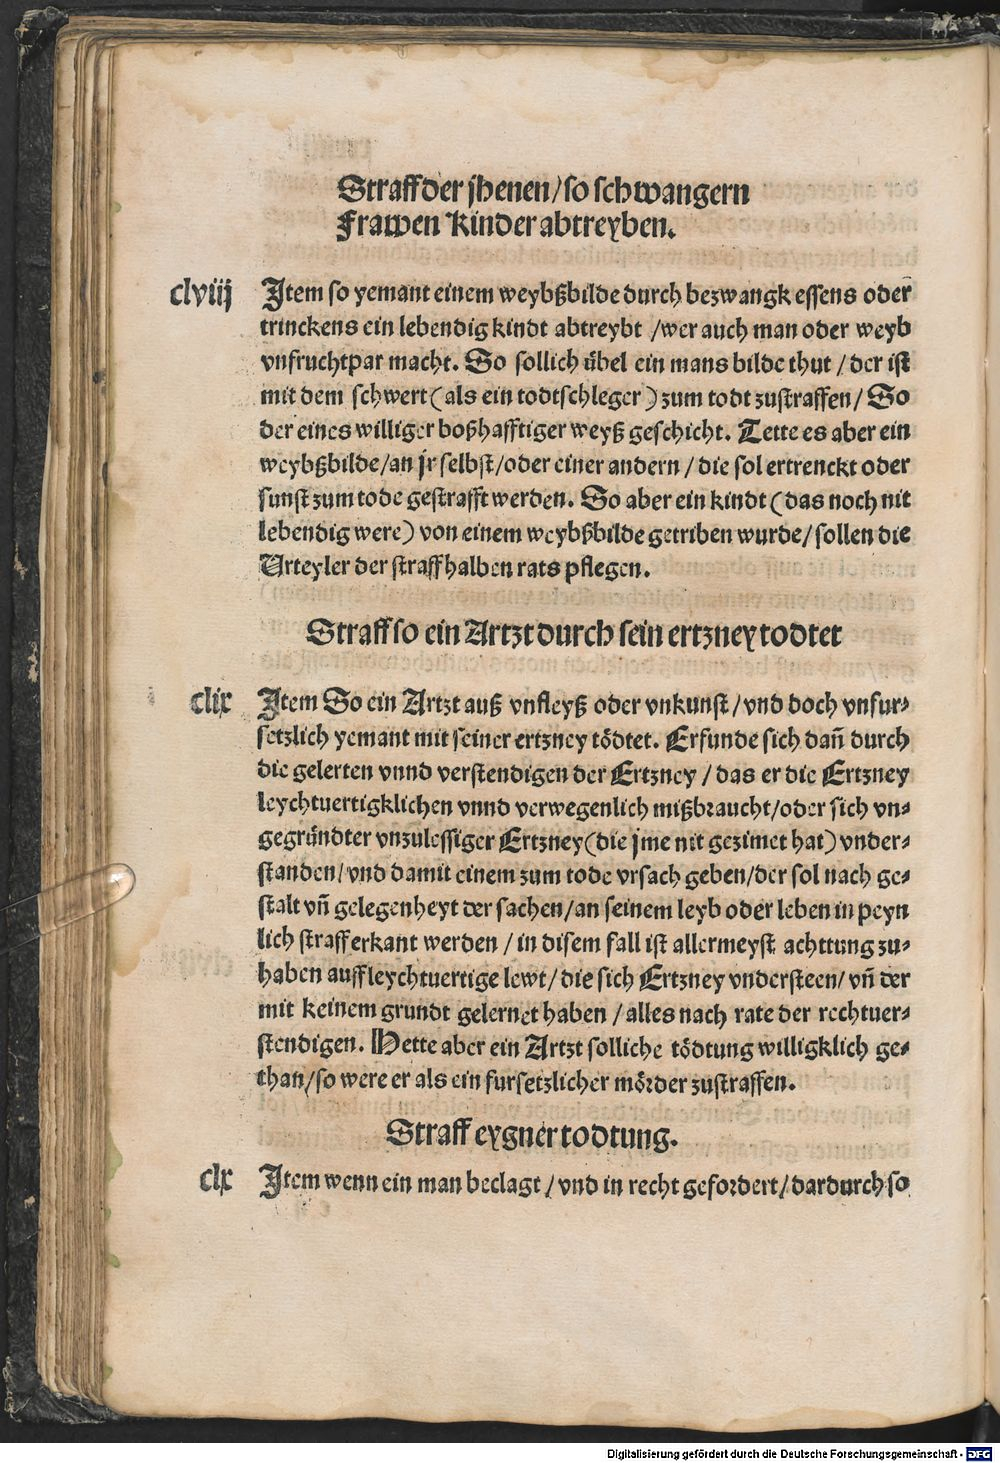 Straff der jhenen/so schwangern
Frawen Kinder abtreyben.
clviij Item so yemant einem weybßbilde durch bezwangk essens oder
trinckens ein lebendig kindt abtreybt /wer auch man oder weyb
vnfruchtpar macht. So sollich übel ein mans bilde thut / der ist
mit dem schwert (als ein todtschleger) zum todt zustraffen/ So
der eines williger boßhafftiger weyß geschicht. Tette es aber ein
weybßbilde/an jr selbst/oder einer andern / die sol ertrenckt oder
sunst zum tode gestrafft werden. So aber ein kindt (das noch nit
lebendig were) von einem weybßbilde getriben wurde/sollen die
Vrteyler der straff halben rats pflegen.
Straff so ein Artzt durch sein ertzney todtet
clix Item So ein Artzt auß vnfleyß oder vnkunst/vnd doch vnfur⸗
setzlich yemant mit seiner ertzney tödtet. Erfunde sich dañ durch
die gelerten vnnd verstendigen der Ertzney / das er die Ertzney
leychtuertigklichen vnnd verwegenlich mißbraucht/oder sich vn⸗
gegründter vnzulessiger Ertzney(die jme nit gezimet hat) vnder⸗
standen/vnd damit einem zum tode vrsach geben/der sol nach ge⸗
stalt vñ gelegenheyt der sachen/an seinem leyb oder leben in peyn
lich straff erkant werden / in disem fall ist allermeyst achttung zu⸗
haben auff leychtuertige lewt/die sich Ertzney vndersteen/ vñ der
mit keinem grundt gelernet haben /alles nach rate der rechtuer⸗
stendigen. Hette aber ein Artzt solliche tödtung willigklich ge⸗
than/so were er als ein fursetzlicher mörder zustraffen.
Straff eygner todtung.
clx Item wenn ein man beclagt/vnd in recht gefordert/dardurch so
Digitalisierung gefördert durch die Deutsche Forschungsgemeinschaft - DFG